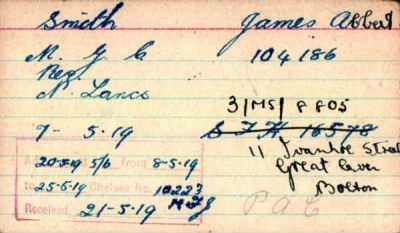 Smith James Albert
M. G. C 104186
Reg
N. Lancs
3/MS/ 8805
7- 5.19 16578
11 Ivanhoe Street
20-5-19 5/6 from 8-5-19
Great Lever
25-5-19 Chelsea No. 10223
Bolton
Received 21-5-19
P A C